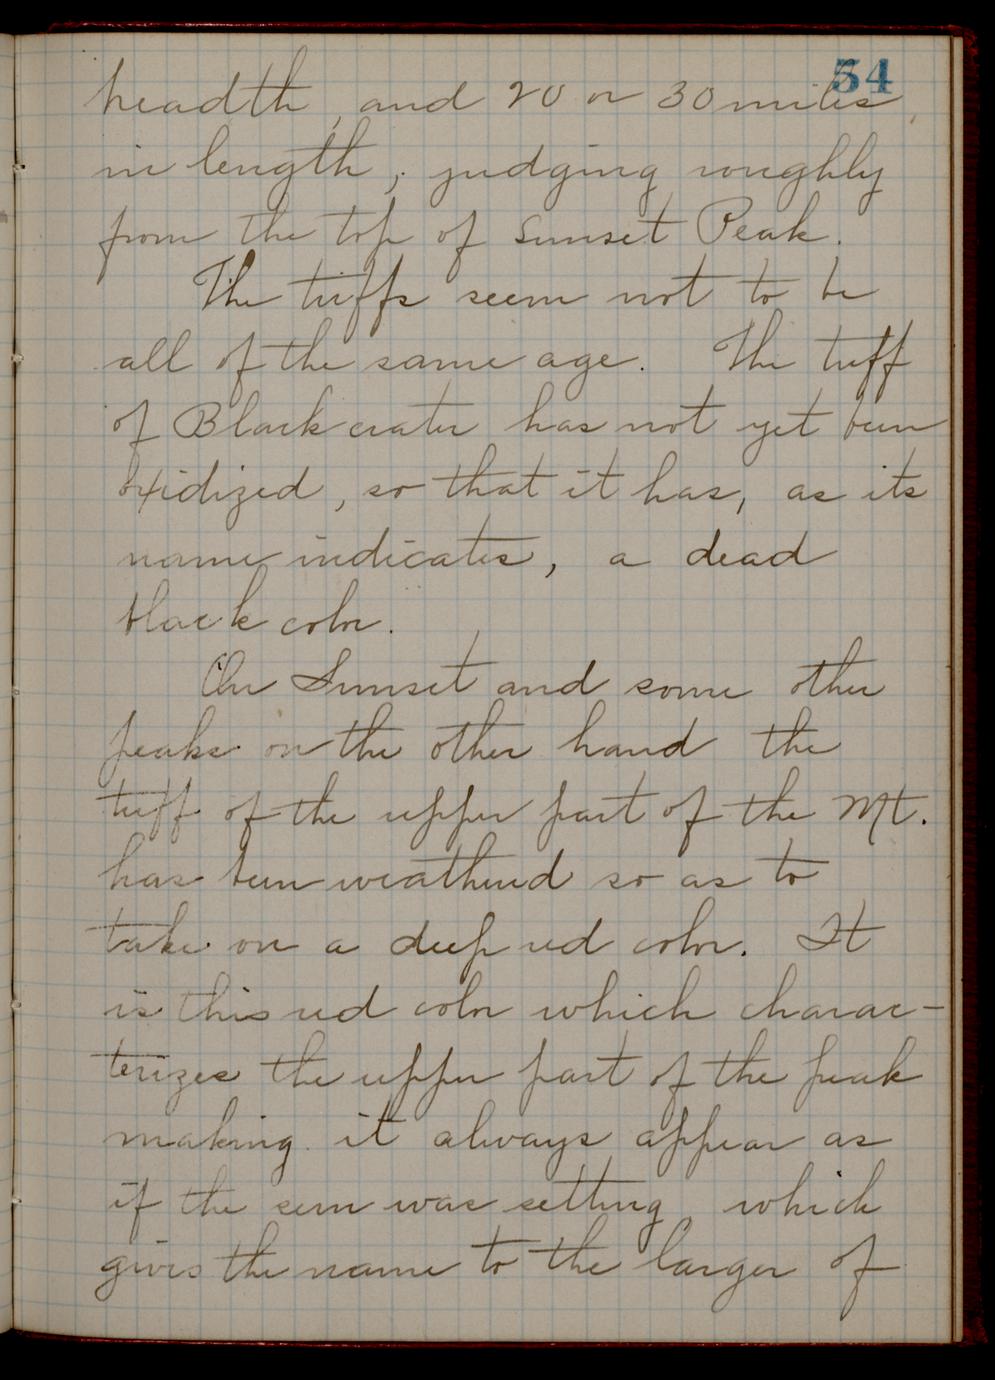 54
breadth, and 20 or 30 miles,
in length, judging roughly
from the top of Sunset Peak.
The tuffs seem not to be
all of the same age. The tuff
of Black crater has not yet been
oxidized, so that it has, as its
name indicates, a dead
black color.
On Sunset and some other
peaks on the other hand the
tuff of the upper part of the Mt.
has been weathered so as to
take on a deep red color. It
is this red color which charac-
terizes the upper part of the peak
making it always appear as
if the sun was setting, which
gives the name to the larger of